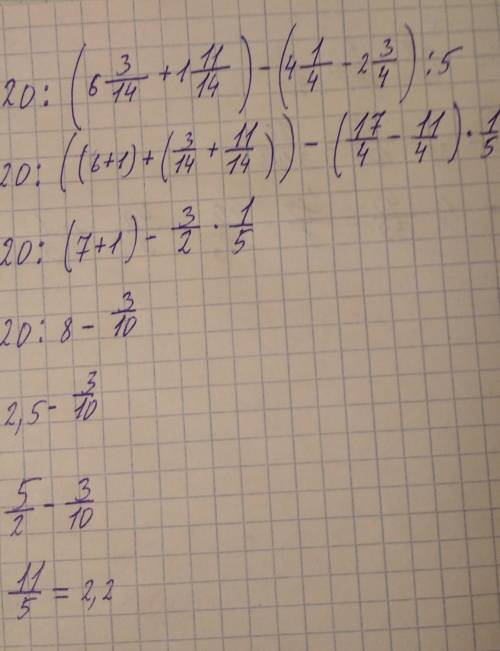 20 : (6 3/14 + 1 11/14) - (4 1/4 - 2 3/4) : 5
20 : ((6+1) + (3/14 + 11/14)) - (17/4 - 11/4) · 1/5
20 : (7+1) - 3/2 · 1/5
20 : 8 - 3/10
2,5 - 3/10
5/2 - 3/10
11/5 = 2,2